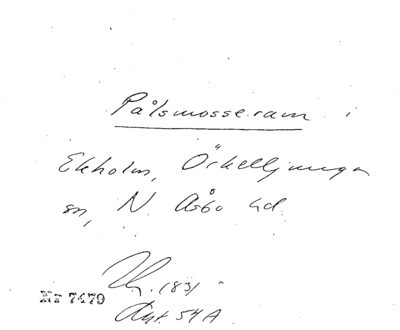 Pålsmosseram i
Ekholm, Örkelljunga
sn, N. Åsbo hd.
1831
Nr 7479
Akt. 54A